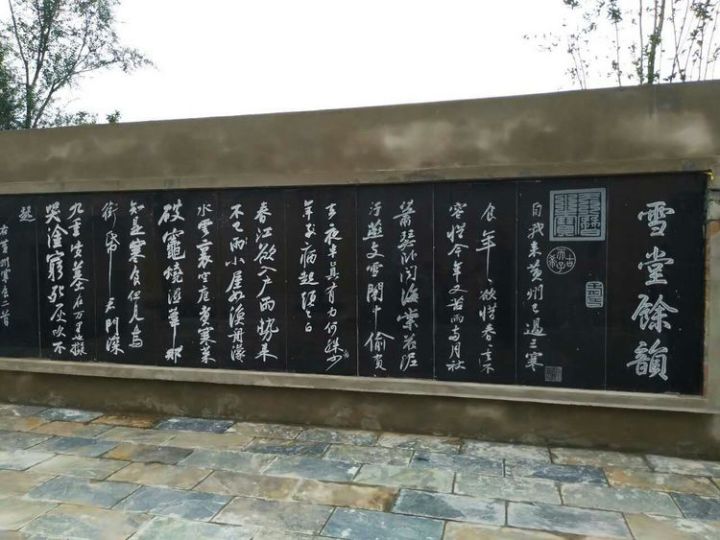 雪堂餘韻
自我來黃州已過三寒
食年々欲惜春々不
容惜今年又苦雨兩月秋
蕭瑟卧聞海棠花泥
汙燕支雪闇中偷負
去夜半真有力何殊少
年子病起頭已白
春江欲入戶雨勢來
不已雨小屋如漁舟濛
水雲裏空庖煮寒菜
破竈燒濕葦那
知是寒食但見烏
銜帋君門深
九重墳墓在萬里也擬
哭塗窮死灰吹不
起
右黃州寒食二首